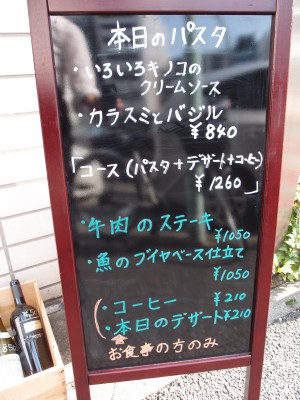 本日のパスタ
・いろいろキノコの
クリームソース
・カラスミとバジル
¥840
「コース(パスタ+デザート+コーヒー)
¥1260」
・牛肉のステーキ
¥1050
・魚のブイヤベース仕立て
¥1050
・コーヒー ¥210
・本日のデザート ¥210
お食事の方のみ